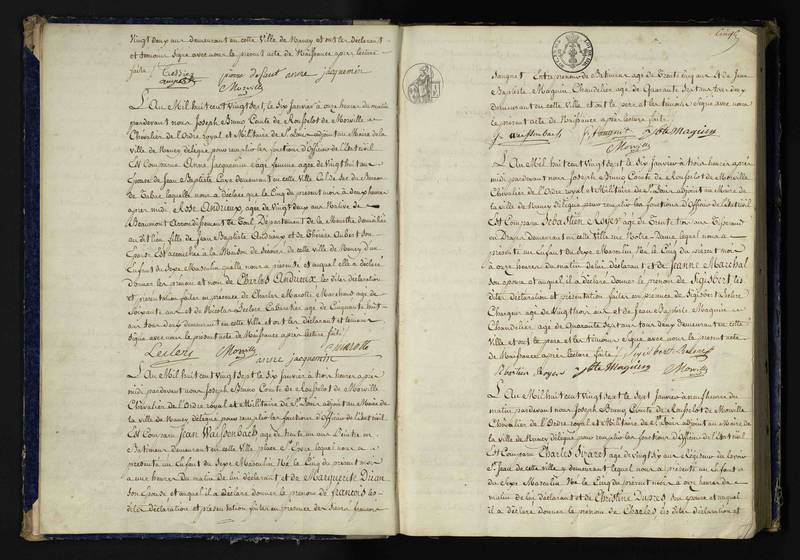 Vingt deux ans demeurant en cette Ville de Nancy et ont les déclarant
et témoins signé avec nous le présent acte de Naissance après lecture
faite
anne jacquemin
Morville
L'An Mil huit cent Vingt sept, le Six Janvier à onze heures du matin
pardevant nous Joseph Bruno Comte de Rousselot de Morville
Chevalier de l'Ordre royal et Militaire de St Louis adjoint au Maire de la
Ville de Nancy délégué pour remplir les fonctions d'Officier de l'état civil
Est Comparue Anne Jacquemin sage femme agée de Vingt huit ans
Epouse de Jean Baptiste demeurant en cette Ville
laquelle nous a déclaré que le Cinq du présent mois à deux heures
après midi Rose Andrieux, agée de Vingt deux ans Native de
Beaumont Arrondissement de Toul Département de la Meurthe domiciliée
audit lieu, fille de Jean Baptiste Andrieux et de Thérèse Aubert son
Epouse Est accouchée à la Maison de Secours de cette ville de Nancy d'un
Enfant du Sexe Masculin quelle nous a présenté et auquel elle a déclaré
donner les prénom et nom de Charles Andrieux, les dites déclaration
et présentation faites en présence de Charles Marotte Marchand agé de
Soixante ans et de Nicolas Leclerc Cabaretier agé de Cinquante huit
ans tous deux demeurant en cette Ville et ont les déclarant et témoins
Signé avec nous le présent acte de Naissance après lecture faite
Leclerc Morville C marotte
anne jacquemin
L'An Mil huit cent Vingt sept le Six Janvier à trois heures après
midi pardevant nous Joseph Bruno Comte de Rousselot de Morville
Chevalier de l'Ordre royal et Militaire de St Louis adjoint au Maire de
la Ville de Nancy délégué pour remplir les fonctions d'Officier de l'état civil
Est Comparu Jean Waissenbach agé de trente un ans Peintre en
Batiment demeurant en cette Ville place St Epvre lequel nous a
présenté un Enfant du Sexe Masculin Né le Cinq du présent mois
à une heure du matin de lui déclarant et de Marguerite
Son Epouse et auquel il a déclaré donner le prénom de François les
dites déclaration et présentation faites en présence de
Entrepreneur de Batiment agé de Trente cinq ans et de Jean
Baptiste Maguin Chandelier agé de Quarante Sept ans tous deux
demeurant en cette Ville et ont le père et les témoins Signé avec nous
le présent acte de Naissance après lecture faite
J. Waissenbach J Bte Maguin
Morville
L'An Mil huit cent Vingt sept le Six Janvier à trois heures après
midi pardevant nous Joseph Bruno Comte de Rousselot de Morville
Chevalier de l'Ordre royal et Militaire de St Louis adjoint au Maire de
la Ville de Nancy délégué pour remplir les fonctions d'Officier de l'état civil
Est Comparu Sébastien Royer agé de Trente trois ans
en Draps demeurant en cette Ville rue Notre Dame lequel nous a
présenté un Enfant du Sexe Masculin Né le Cinq du présent mois
à onze heures du matin de lui déclarant et de Jeanne Maréchal
Son épouse et auquel il a déclaré donner le prénom de Sigisbert les
dites déclaration et présentation faites en présence de Sigisbert
agé de Vingt trois ans et de Jean Baptiste Maguin
Chandelier, agé de Quarante Sept ans tous deux demeurant en cette
Ville et ont le père et les témoins Signé avec nous le présent acte
de Naissance après lecture faite
Sébastien Royer J Bte Maguin Morville
L'An Mil huit cent Vingt sept le Sept Janvier à neuf heures du
matin pardevant nous Joseph Bruno Comte de Rousselot de Morville
Chevalier de l'Ordre royal et Militaire de St Louis adjoint au Maire de
la Ville de Nancy délégué pour remplir les fonctions d'Officier de l'état civil
Est Comparu Charles Sivaret agé de vingt Six ans
St Jean de cette ville y demeurant lequel nous a présenté un Enfant
du Sexe Masculin Né le Cinq du présent mois à onze heures du
matin de lui déclarant et de Christine Son épouse et auquel
il a déclaré donner le prénom de Charles, les dites déclaration et